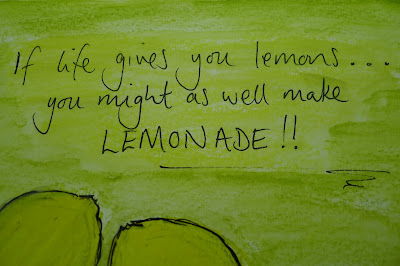 If life gives you lemons...
you might as well make
LEMONADE!!